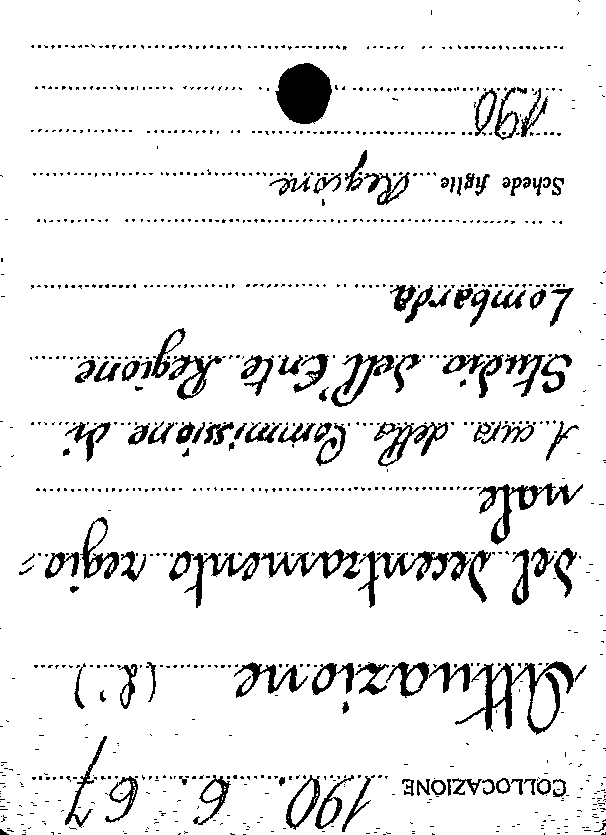 COLLOCAZIONE 190. 6. 67
Attuazione (L')
del decentramento regio=
nale
A cura della Commissione di
Studio dell'Ente Regione
Lombarda
Schede figlie Regione
190